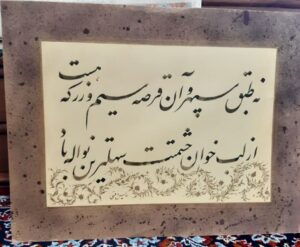 نه طبق سپهر و آن قرصه سیم و زر که هست
از لب خوان حشمتت سهلترین نواله باد